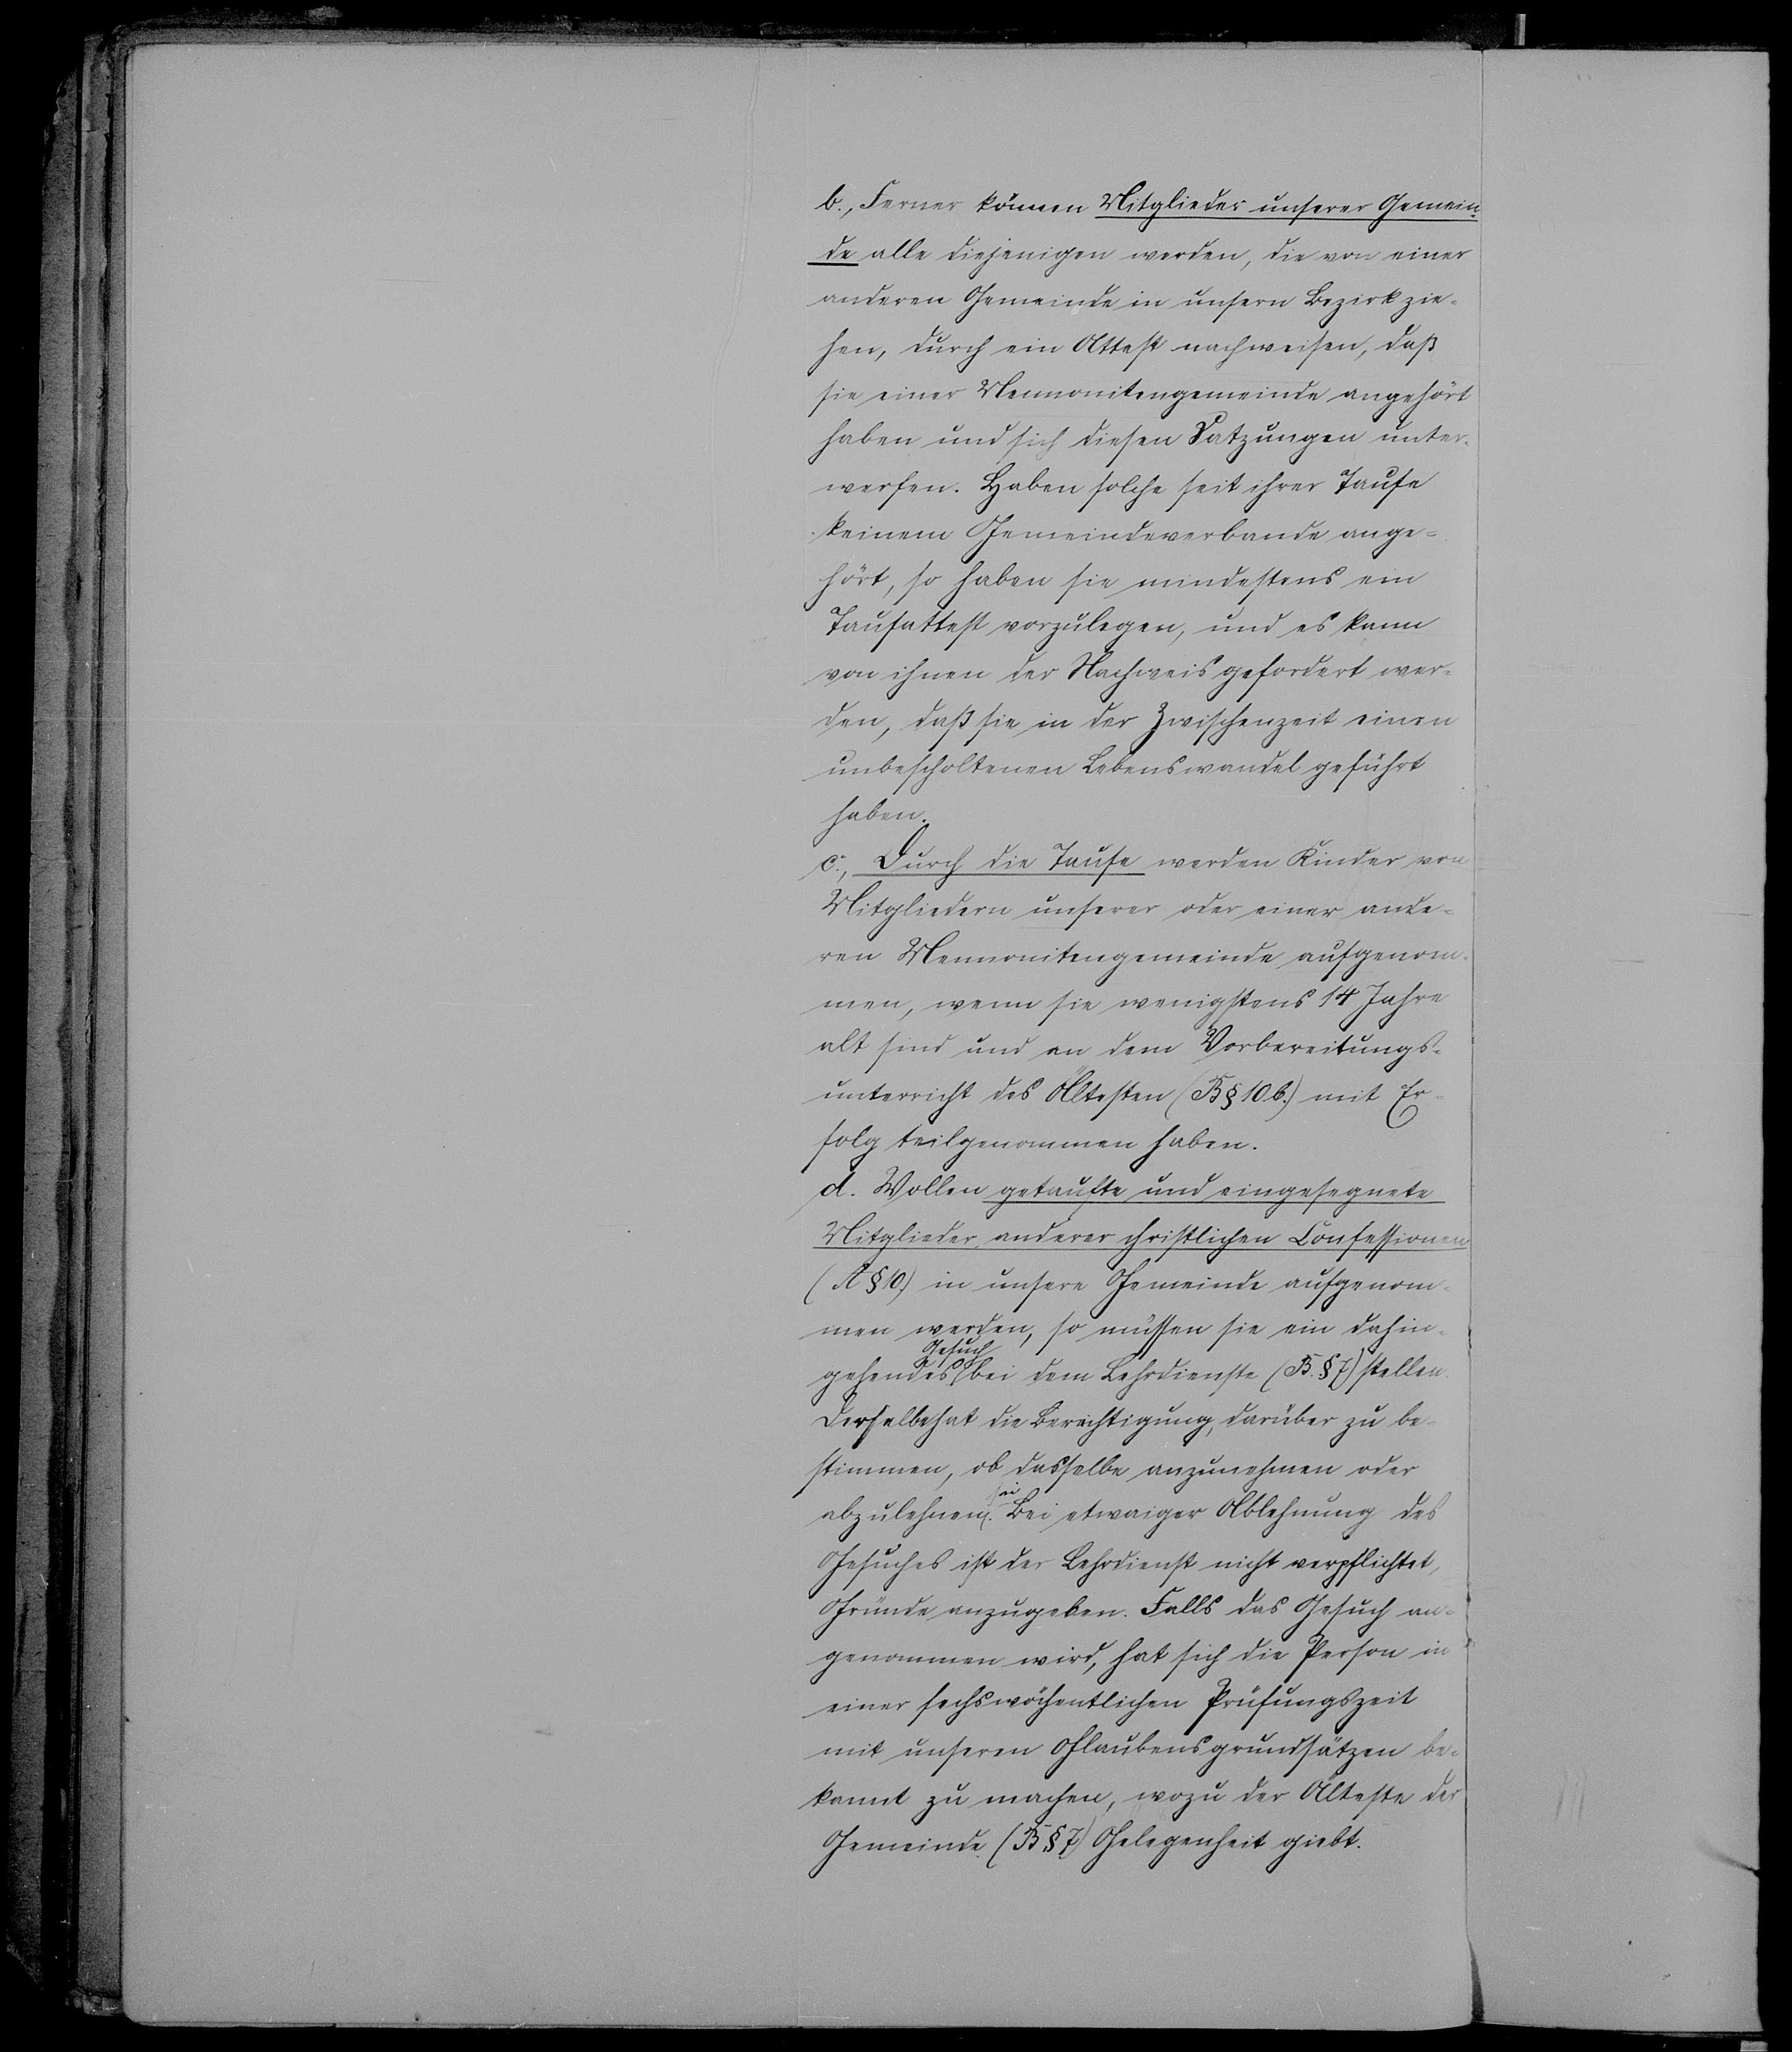 b., Ferner können Mitglieder unserer Gemein-
de alle diejenigen werden, die von einer
anderen Gemeinde in unsern Bezirk zie-
hen, durch ein Attest nachweisen, daß
sie einer Mennonitengemeinde angehört
haben und sich diesen Satzungen unter-
werfen. Haben solche seit ihrer Taufe
keinem Gemeindeverbande ange-
hört, so haben sie mindestens ein
Taufattest vorzulegen, und es kann
von ihnen der Nachweis gefordert wer-
den, daß sie in der Zwischenzeit einen
unbescholtenen Lebenswandel geführt
haben.
c., Durch die Taufe werden Kinder von
Mitgliedern unserer oder einer ande-
ren Mennonitengemeinde aufgenom-
men, wenn sie wenigstens 14 Jahre
alt sind und an dem Vorbereitungs-
unterricht des Ältesten (B § 10 b.) mit Er-
folg teilgenommen haben.
d. Wollen getaufte und eingesegnete
Mitglieder anderer christlichen Confessionen
(A § 10.) in unsere Gemeinde aufgenom-
men werden, so müssen sie ein dahin-
gehendes Gesuch bei dem Lehrdienste (B. § 7) stellen.
Derselbe hat die Berechtigung, darüber zu be-
stimmen, ob dasselbe anzunehmen oder
abzulehnen sei. Bei etwaiger Ablehnung des
Gesuches ist der Lehrdienst nicht verpflichtet,
Gründe anzugeben. Falls das Gesuch an-
genommen wird, hat sich die Person in
einer sechswöchentlichen Prüfungszeit
mit unseren Glaubensgrundsätzen be-
kannt zu machen, wozu der Älteste der
Gemeinde (B. § 7) Gelegenheit giebt.